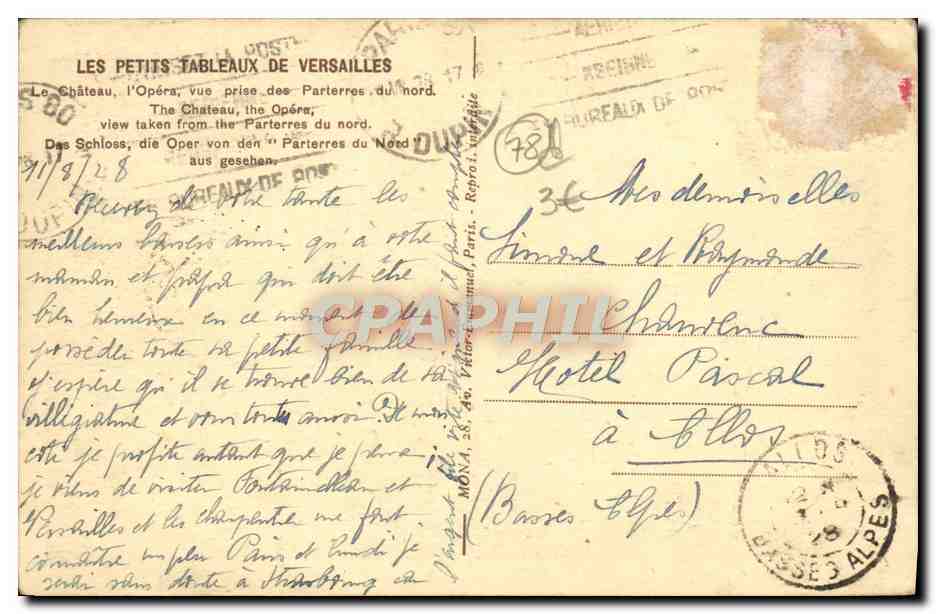 LES PETITS TABLEAUX DE VERSAILLES
Le Château, l'Opéra, vue prise des Parterres du nord.
The Chateau, the Opéra,
view taken from the Parterres du nord.
Das Schloss, die Oper von den " Parterres du Nord "
aus gesehen.
11/8/28
Recevez de votre tante les
meilleurs baisers ainsi qu'à votre
maman et papa qui doit être
bien heureux en ce moment de
posséder toute sa petite famille
j'espère qu'il se trouve bien de sa
villégiature et vous toutes aussi. De mon
côté je profite autant que je peux
je viens de visiter Fontainebleau et
Versailles et les charpentier me font
connaître un peu Paris et lundi je
serai sans doute à Strasbourg ca
l'argent file vite il faut
MONA, 28, Av. Victor-Emmanuel, Paris. - Reprod. interdite
78
3€
Mesdemoiselles
Simone et Raymonde
Hotel Pascal
à Allos
(Basses Alpes)
BUREAUX DE POS
BUREAUX DE POS
ALLOS
28
BASSES ALPES
CPAPHIL